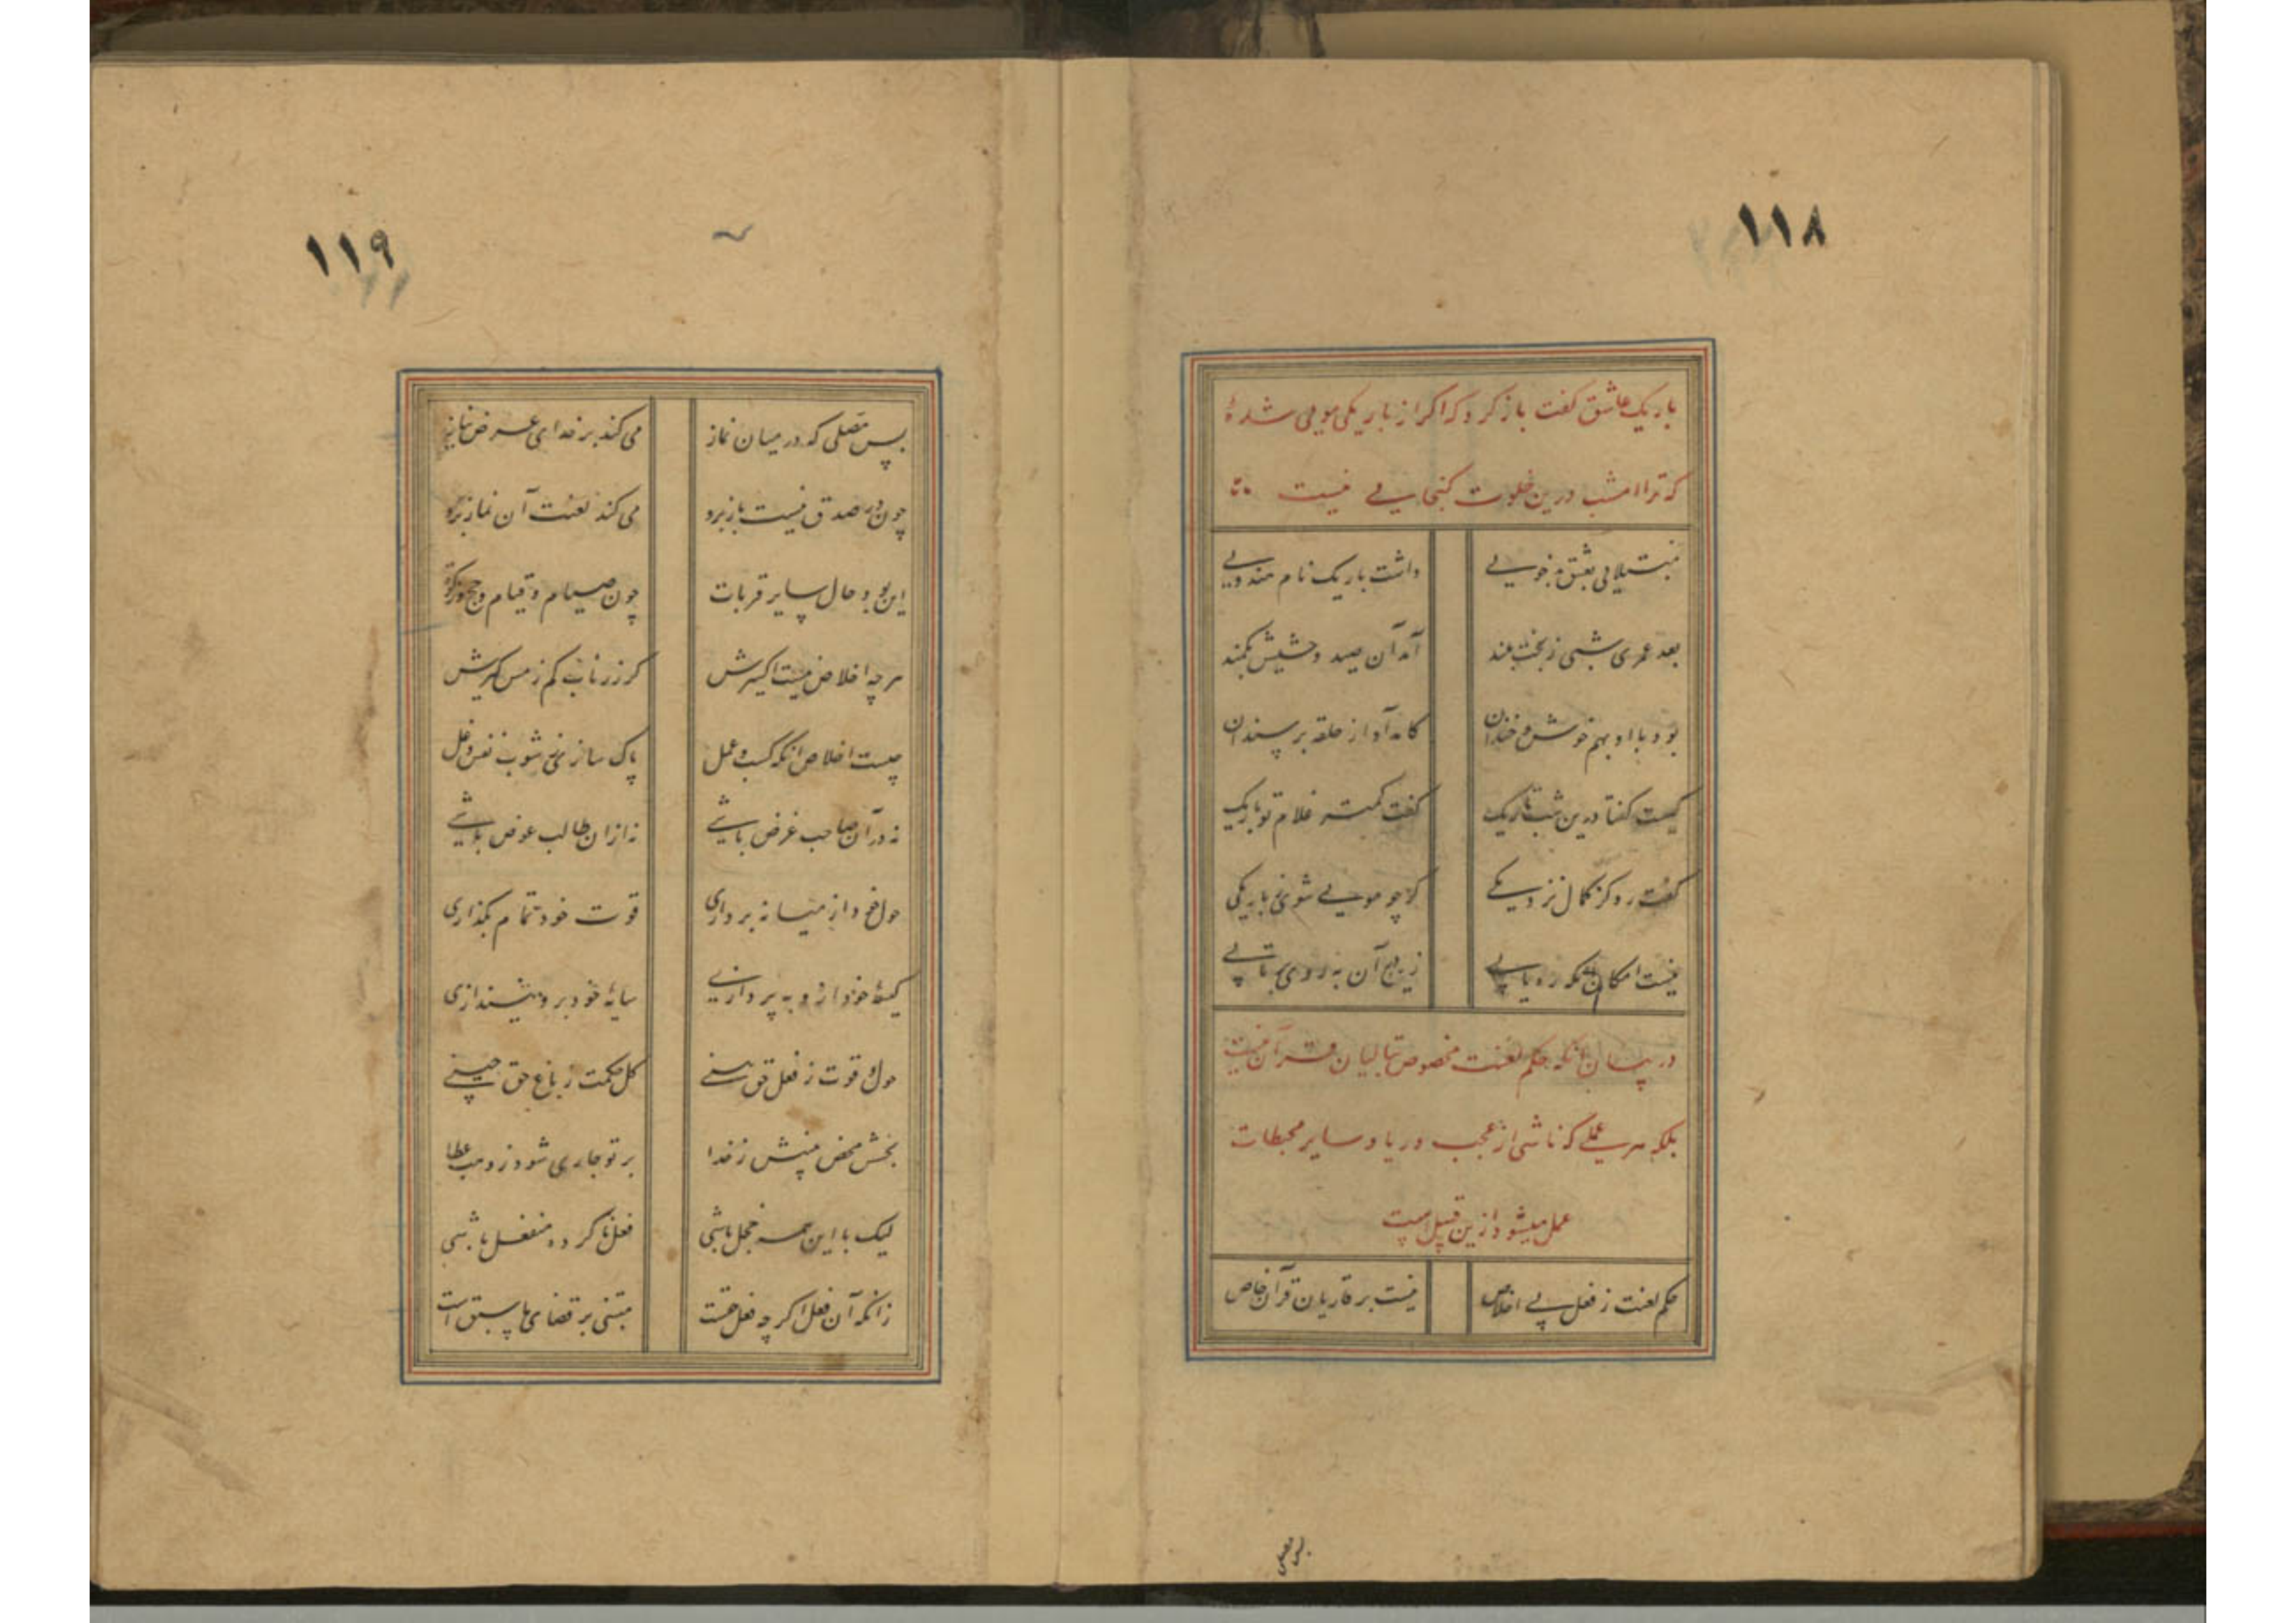 ۱۱۸
باریک عاشق گفت باز کرد که اگر از باریکی مویی شدهٔ
که ترا امشب درین خلوت گنجایی نیست
مبتلایی بعشق بدخویی
داشت باریک نام هندویی
بعد عمری شبی ز بخت بلند
آمد آن صید وحشیش بکمند
بود با او بهم خوش و خندان
کامد آواز حلقه بر سندان
کیست گفتا درین شب تاریک
گفت کمتر غلام تو باریک
گفت رو کز کمال نزدیکی
گر چو مویی شوی بباریکی
نیست امکان آنکه ره یابی
زین در آن به که روی برتابی
در بیان آنکه حکم لعنت مخصوص بتالیان قرآن نیست
بلکه هر عملی که ناشی از عجب و ریا و سایر محبطات
عمل میشود ازین قبیل است
حکم لعنت ز فعل بی اخلاص
نیست بر قاریان قرآن خاص
پس مصلی
۱۱۹
پس مصلی که در میان نماز
می کند بر خدای عرض نیاز
چون در صدق نیست باز برو
می کند لعنت آن نماز برو
این بود حال سایر قربات
چون صیام و قیام و حج و زکوة
هر چه اخلاص نیست اکسیرش
گر زر ناب کم ز مس گیرش
چیست اخلاص آنکه کسب و عمل
پاک سازی ز شوب نفس و دغل
نه در آن صاحب غرض باشی
نه ازان طالب عوض باشی
حول خود از میانه برداری
قوت خود تمام بگذاری
کیسهٔ خود ازو بپردازی
سایهٔ خود برو نیندازی
حول و قوت ز فعل حق بینی
گل حکمت ز باغ حق چینی
بخشش محض بینیش ز خدا
بر تو جاری شود ز وهب عطا
لیک با این همه خجل باشی
فعل ناکرده منفعل باشی
زانکه آن فعل اگر چه فعل حقست
مبتنی بر قضای ما سبق است